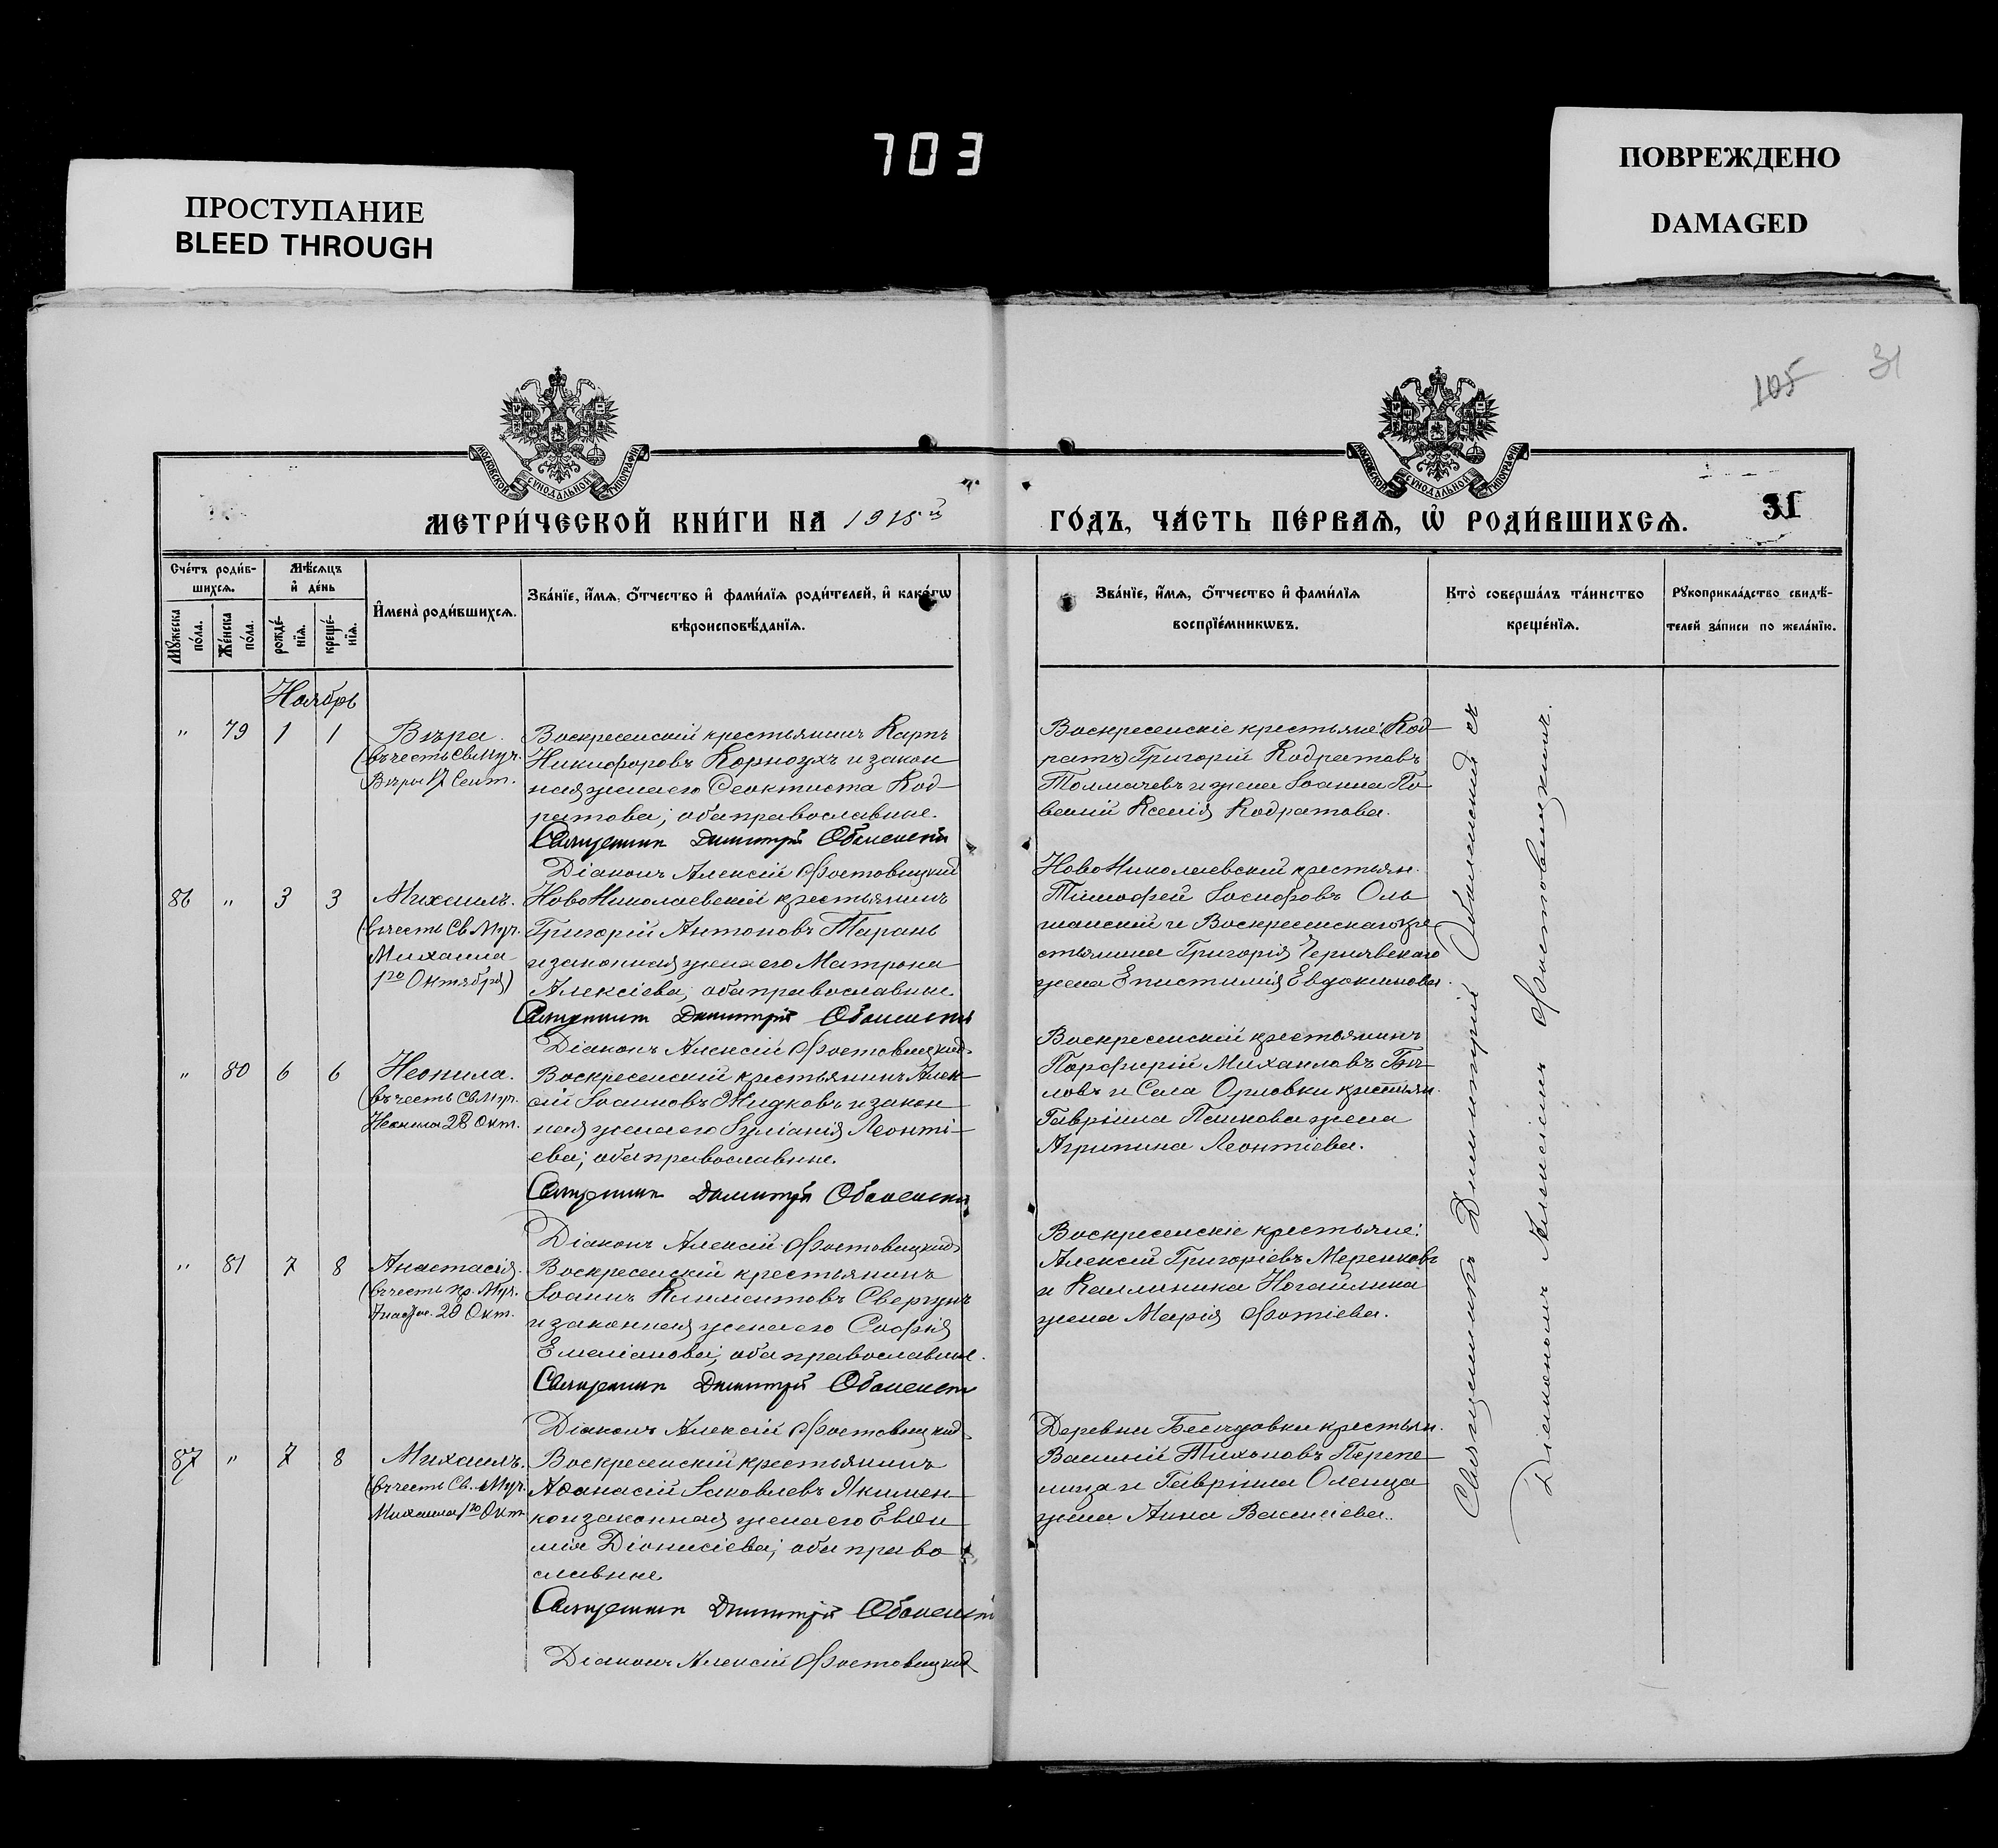 703
ПРОСТУПАНИЕ
BLEED THROUGH
ПОВРЕЖДЕНО
DAMAGED
105
31
МОСКОВСКОЙ СѴНОДАЛЬНОЙ ТИПОГРАФІИ
МОСКОВСКОЙ СѴНОДАЛЬНОЙ ТИПОГРАФІИ
МЕТРИ́ЧЕСКОЙ КНИ́ГИ НА 1915й
ГО́ДЪ, ЧА́СТЬ ПЕ́РВАѦ, Ѡ҆ РОДИ́ВШИХСѦ.
31
Сче́тъ роди́в-
шихсѧ.
Мꙋ́жеска по́ла.
Же́нска по́ла.
Мѣ́сѧцъ
и҆ де́нь
рожде́-
нїѧ.
креще́-
нїѧ.
И҆мена̀ роди́вшихсѧ.
Зва́нїе, и҆́мѧ, ѻ҆́тчество и҆ фами́лїѧ роди́телей, и҆ како́гѡ
вѣроисповѣ́данїѧ.
Зва́нїе, и҆́мѧ, ѻ҆́тчество и҆ фами́лїѧ
воспрїе́мникѡвъ.
Кто̀ соверша́лъ та́инство
креще́нїѧ.
Рꙋкоприкла́дство свидѣ́-
телей за́писи по жела́нїю.
Ноябрь
" 79 1 1
Вѣра.
(въ честь Св. Муч.
Вѣры 17 Сент.
Воскресенскій крестьянинъ Карпъ
Никифоровъ Корноухъ и закон-
ная жена его Ѳеоктиста Код-
ратова; оба православные.
Священник Димитрій Оболенскій
Діаконъ Алексій Фостовицкій
Воскресенскіе крестьяне: (Код-
ратъ) Григорій Кодратовъ
Толмачевъ и жена Іоанна По-
Ксенія Кодратова.
86 " 3 3
Михаилъ.
(въ честь Св. Муч.
Михаила
1го Октября)
НовоНиколаевскій крестьянинъ
Григорій Антоновъ Тарань
и законная жена его Матрона
Алексіева; оба православные.
Священник Димитрій Оболенскій
Діаконъ Алексій Фостовицкій
НовоНиколаевскій крестьян.
Тимофей Іосифовъ Оль-
шанскій и Воскресенскаго кре-
стьянина Григорія Чернявскаго
жена Епистимія Евдокимова.
" 80 6 6
Неонила.
(въ честь Св. Муч.
Неонилы 28 Окт.
Воскресенскій крестьянинъ Алек-
сій Іоанновъ Жидковъ и закон-
ная жена его Іуліанія Леонті-
ева; оба православные.
Священник Димитрій Оболенскій
Діаконъ Алексій Фостовицкій
Воскресенскій крестьянинъ
Порфирій Михаиловъ Бѣ-
ловъ и Села Орловки крестьян.
Гавріила Пашкова жена
Агрипина Леонтіева.
" 81 7 8
Анастасія.
(въ честь пр. Муч.
Анастас. 29 Окт.
Воскресенскій крестьянинъ
Іоаннъ Климентовъ Свергунъ
и законная жена его Софія
Емеліанова; оба православные.
Священник Димитрій Оболенскій
Діаконъ Алексій Фостовицкій
Воскресенскіе крестьяне:
Алексій Григоріевъ Меренковъ
и Каллиника Ногайлика
жена Марія Фотіева.
87 " 7 8
Михаилъ.
(въ честь Св. Муч.
Михаила 1го Окт.
Воскресенскій крестьянинъ
Аѳанасій Іаковлевъ Якимен-
ко и законная жена его Евѳи-
мія Діонисіева; оба право-
славные
Священник Димитрій Оболенскій
Діаконъ Алексій Фостовицкій
Деревни крестьян.
Василій Тихоновъ Перепе-
лица и Гавріила Оленца
жена Анна Василіева.
Священникъ Димитрій Оболенскій съ
Діакономъ Алексіемъ Фостовицкимъ.